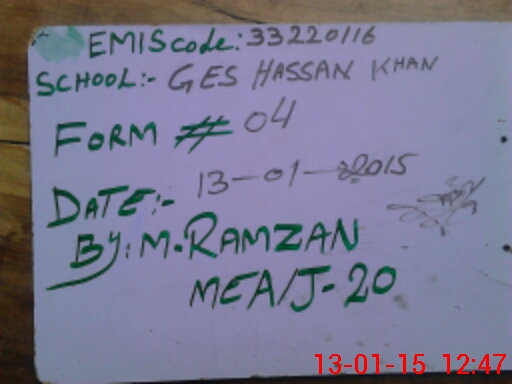 EMIS code: 33220116
SCHOOL:- GES HASSAN KHAN
FORM # 04
DATE:- 13-01-2015
BY: M.RAMZAN
MEA/J-20
13-01-15 12:47